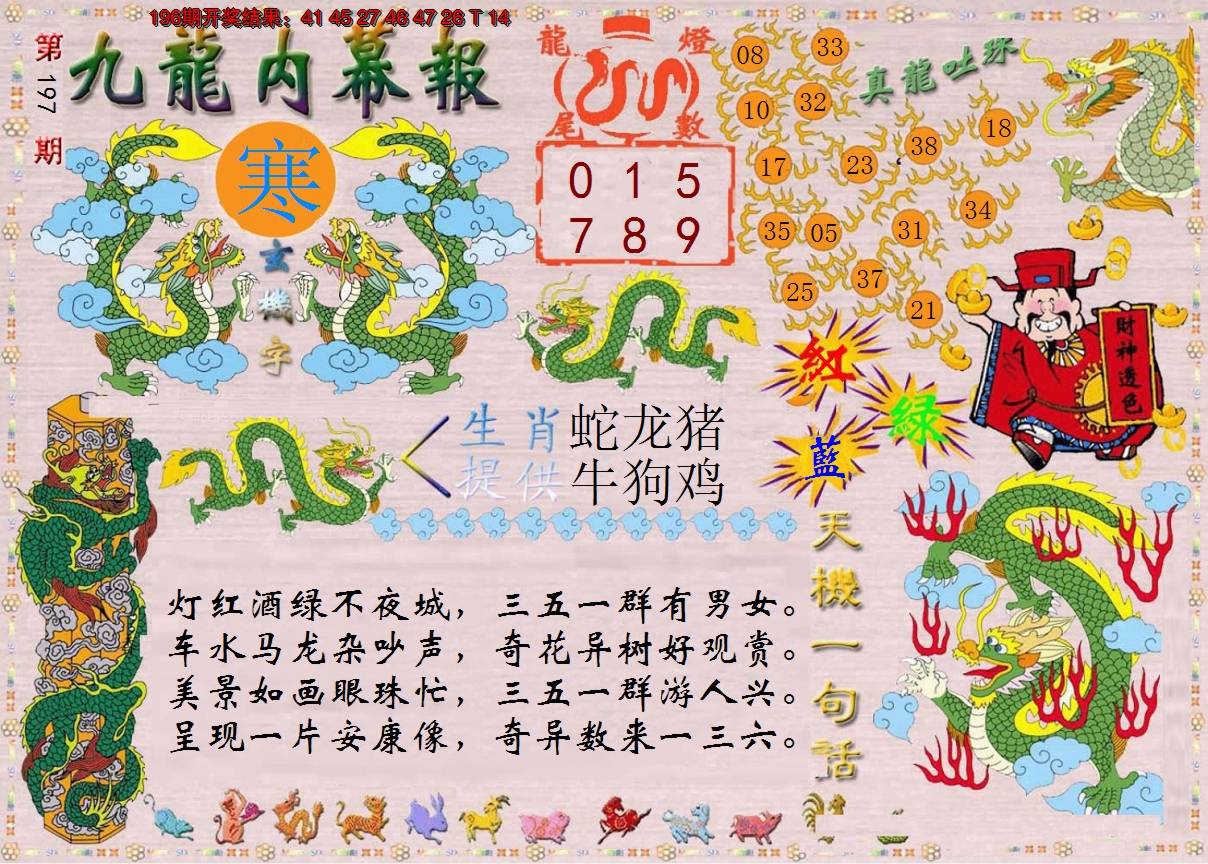 196期开奖结果：41 45 27 46 47 26 T 14
第197期
九龍内幕報
寒
玄機字
龍燈
尾數
0 1 5
7 8 9
真龍吐珠
08 33
10 32
38 18
17 23
34
35 05 31
25 37
21
財神透色
紅
绿
藍
生肖 蛇龙猪
提供 牛狗鸡
天機一句話
灯红酒绿不夜城，三五一群有男女。
车水马龙杂吵声，奇花异树好观赏。
美景如画眼珠忙，三五一群游人兴。
呈现一片安康像，奇异数来一三六。